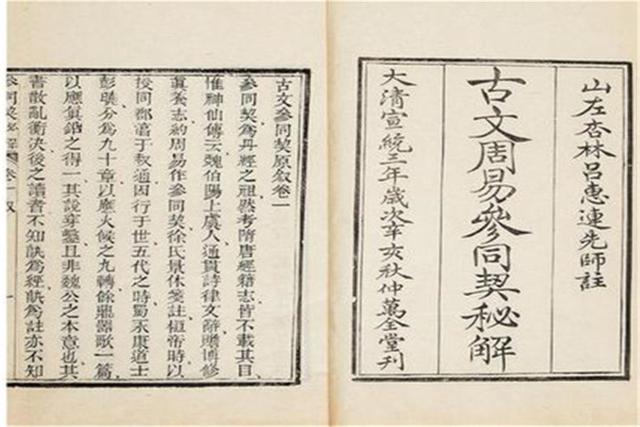 山左杏林呂惠連先師註
古文周易參同契秘解
大清宣統三年歲次辛亥秋仲萬全堂刊
古文參同契原敘卷一
參同契爲丹經之祖然考隋唐經籍志皆不載其目
惟神仙傳云魏伯陽上虞人通貫詩律文辭贍博修
眞養志約周易作參同契徐氏景休箋註桓帝時以
授同郡淳于叔通因行于世五代之時蜀永康道士
彭曉分爲九十章以應火候之九轉餘鼎器歌一篇
以應眞鉛之得一其說穿鑿且非魏公之本意也其
書散亂衡決後之讀者不知孰爲經孰爲註亦不知